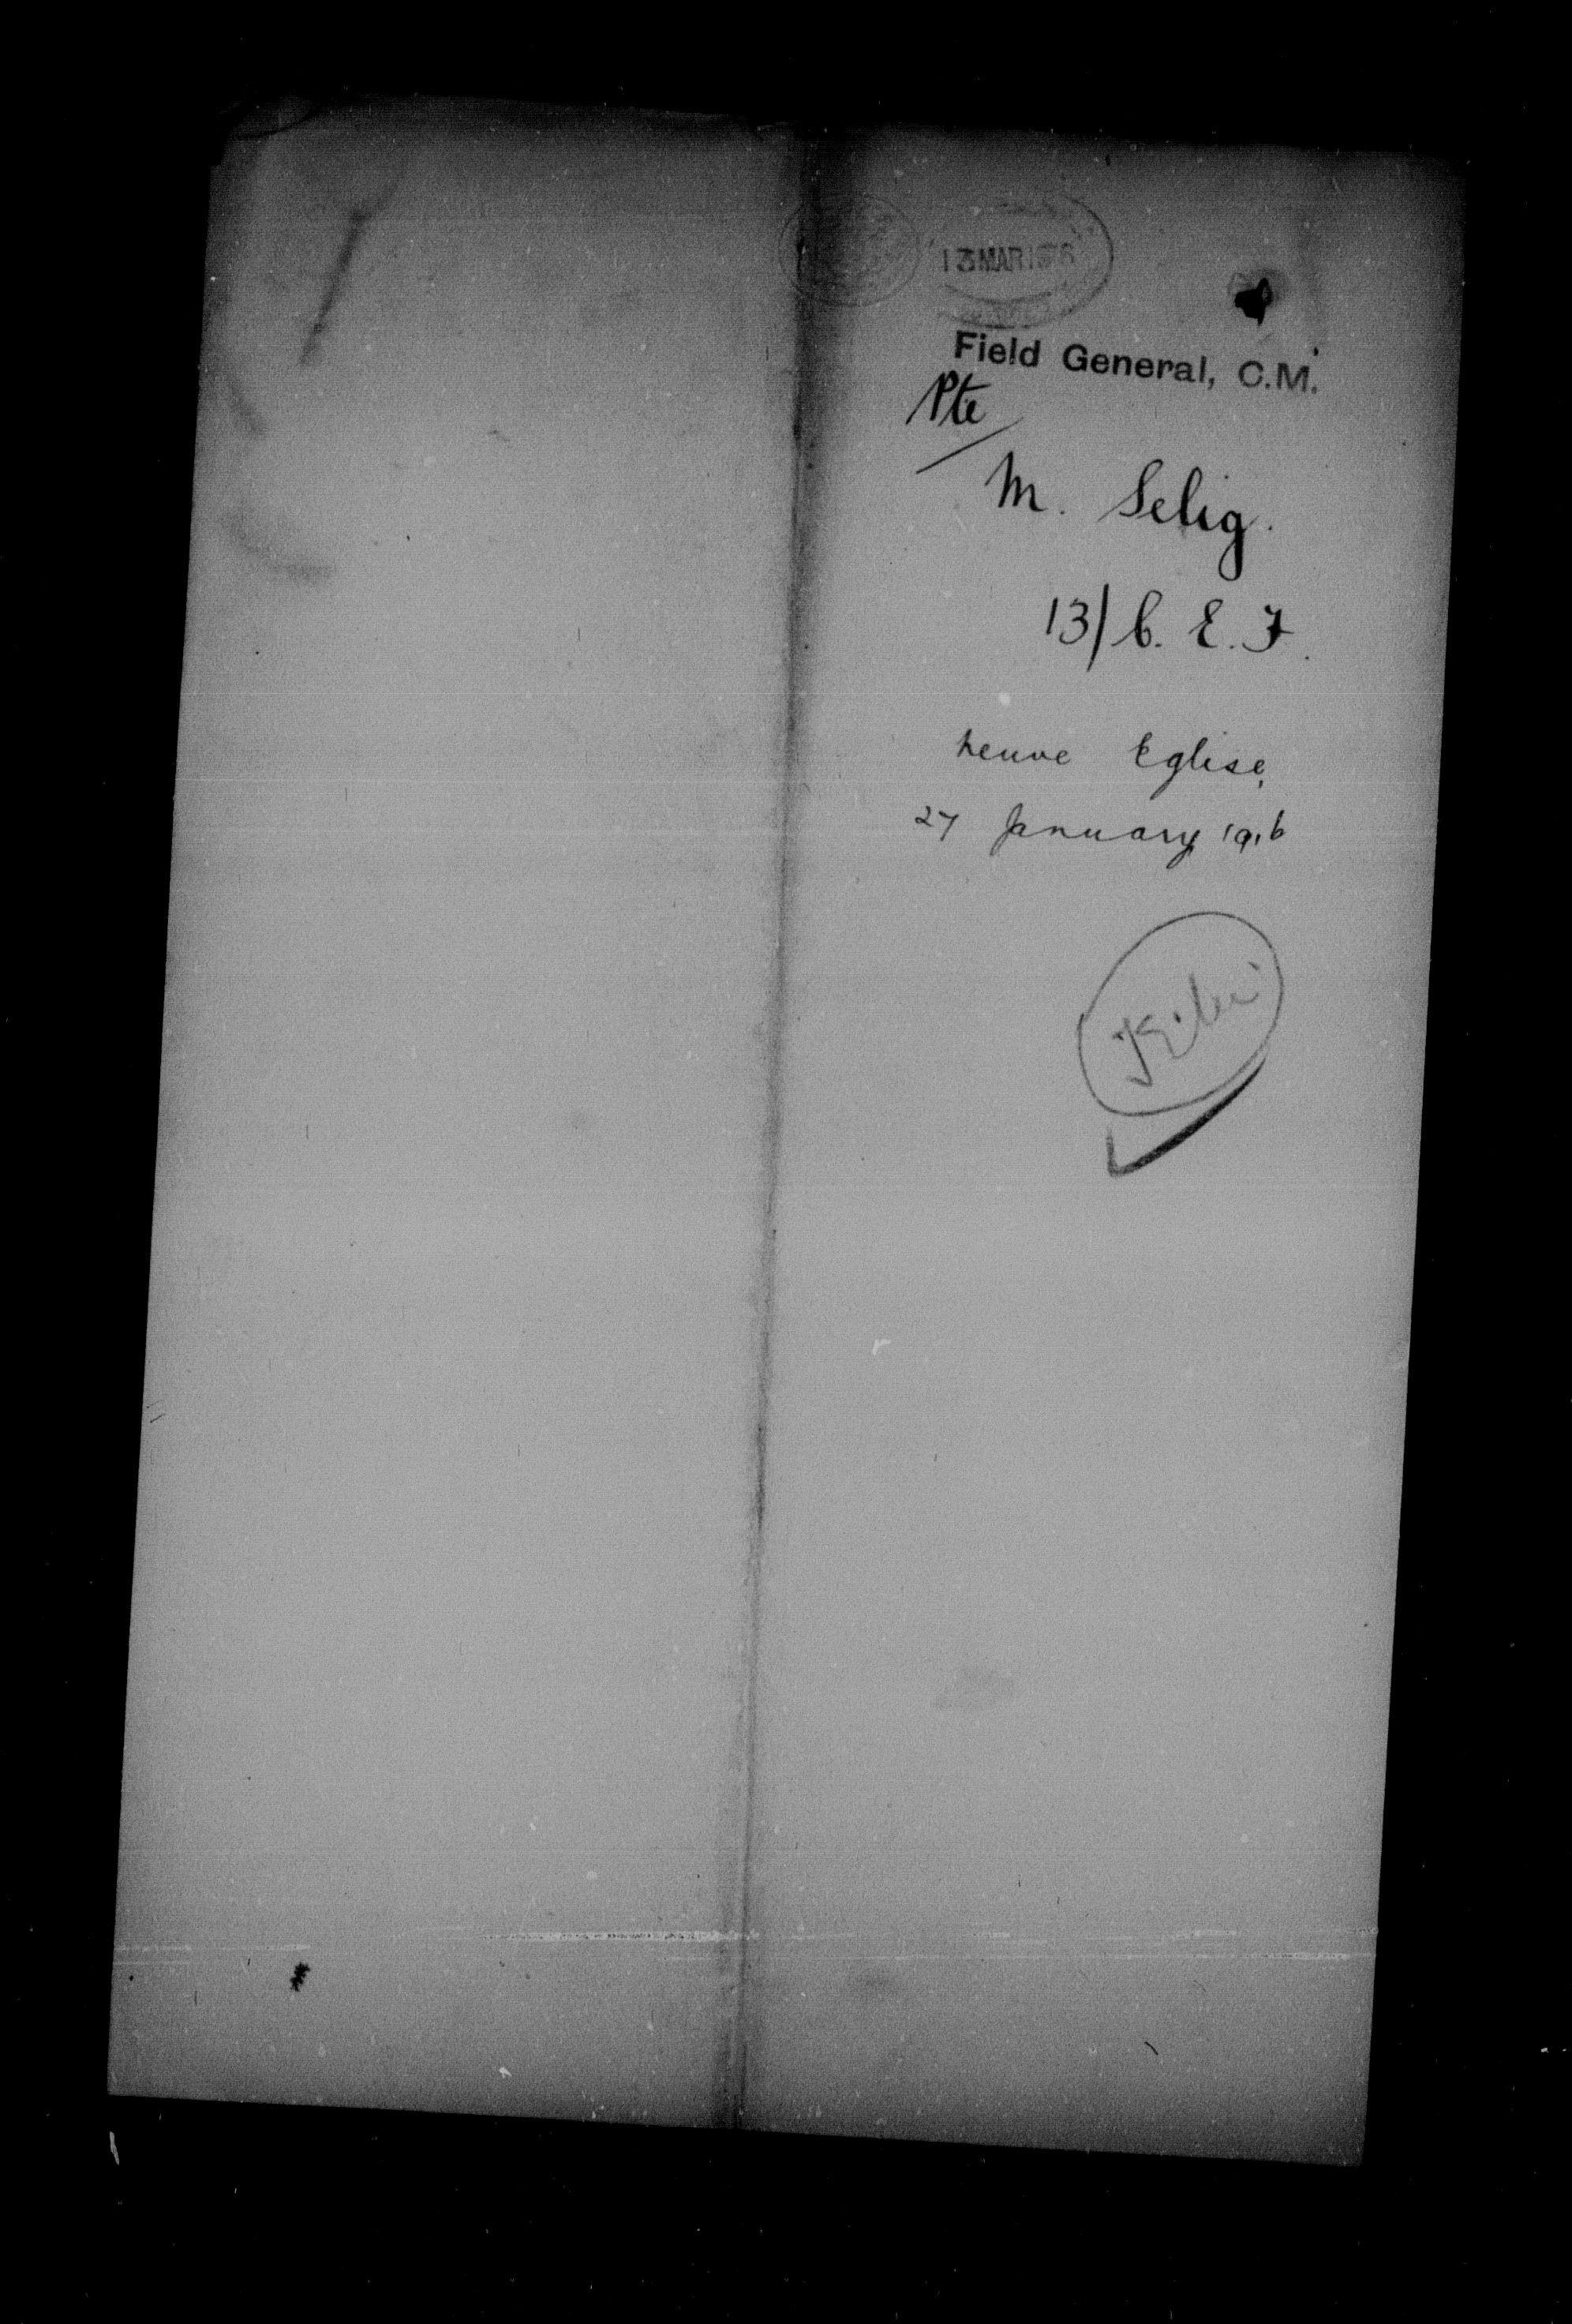 13 MAR 1916
Field General, C.M.
Pte
M. Selig.
13/C. E. F.
Neuve Eglise,
27 January 1916